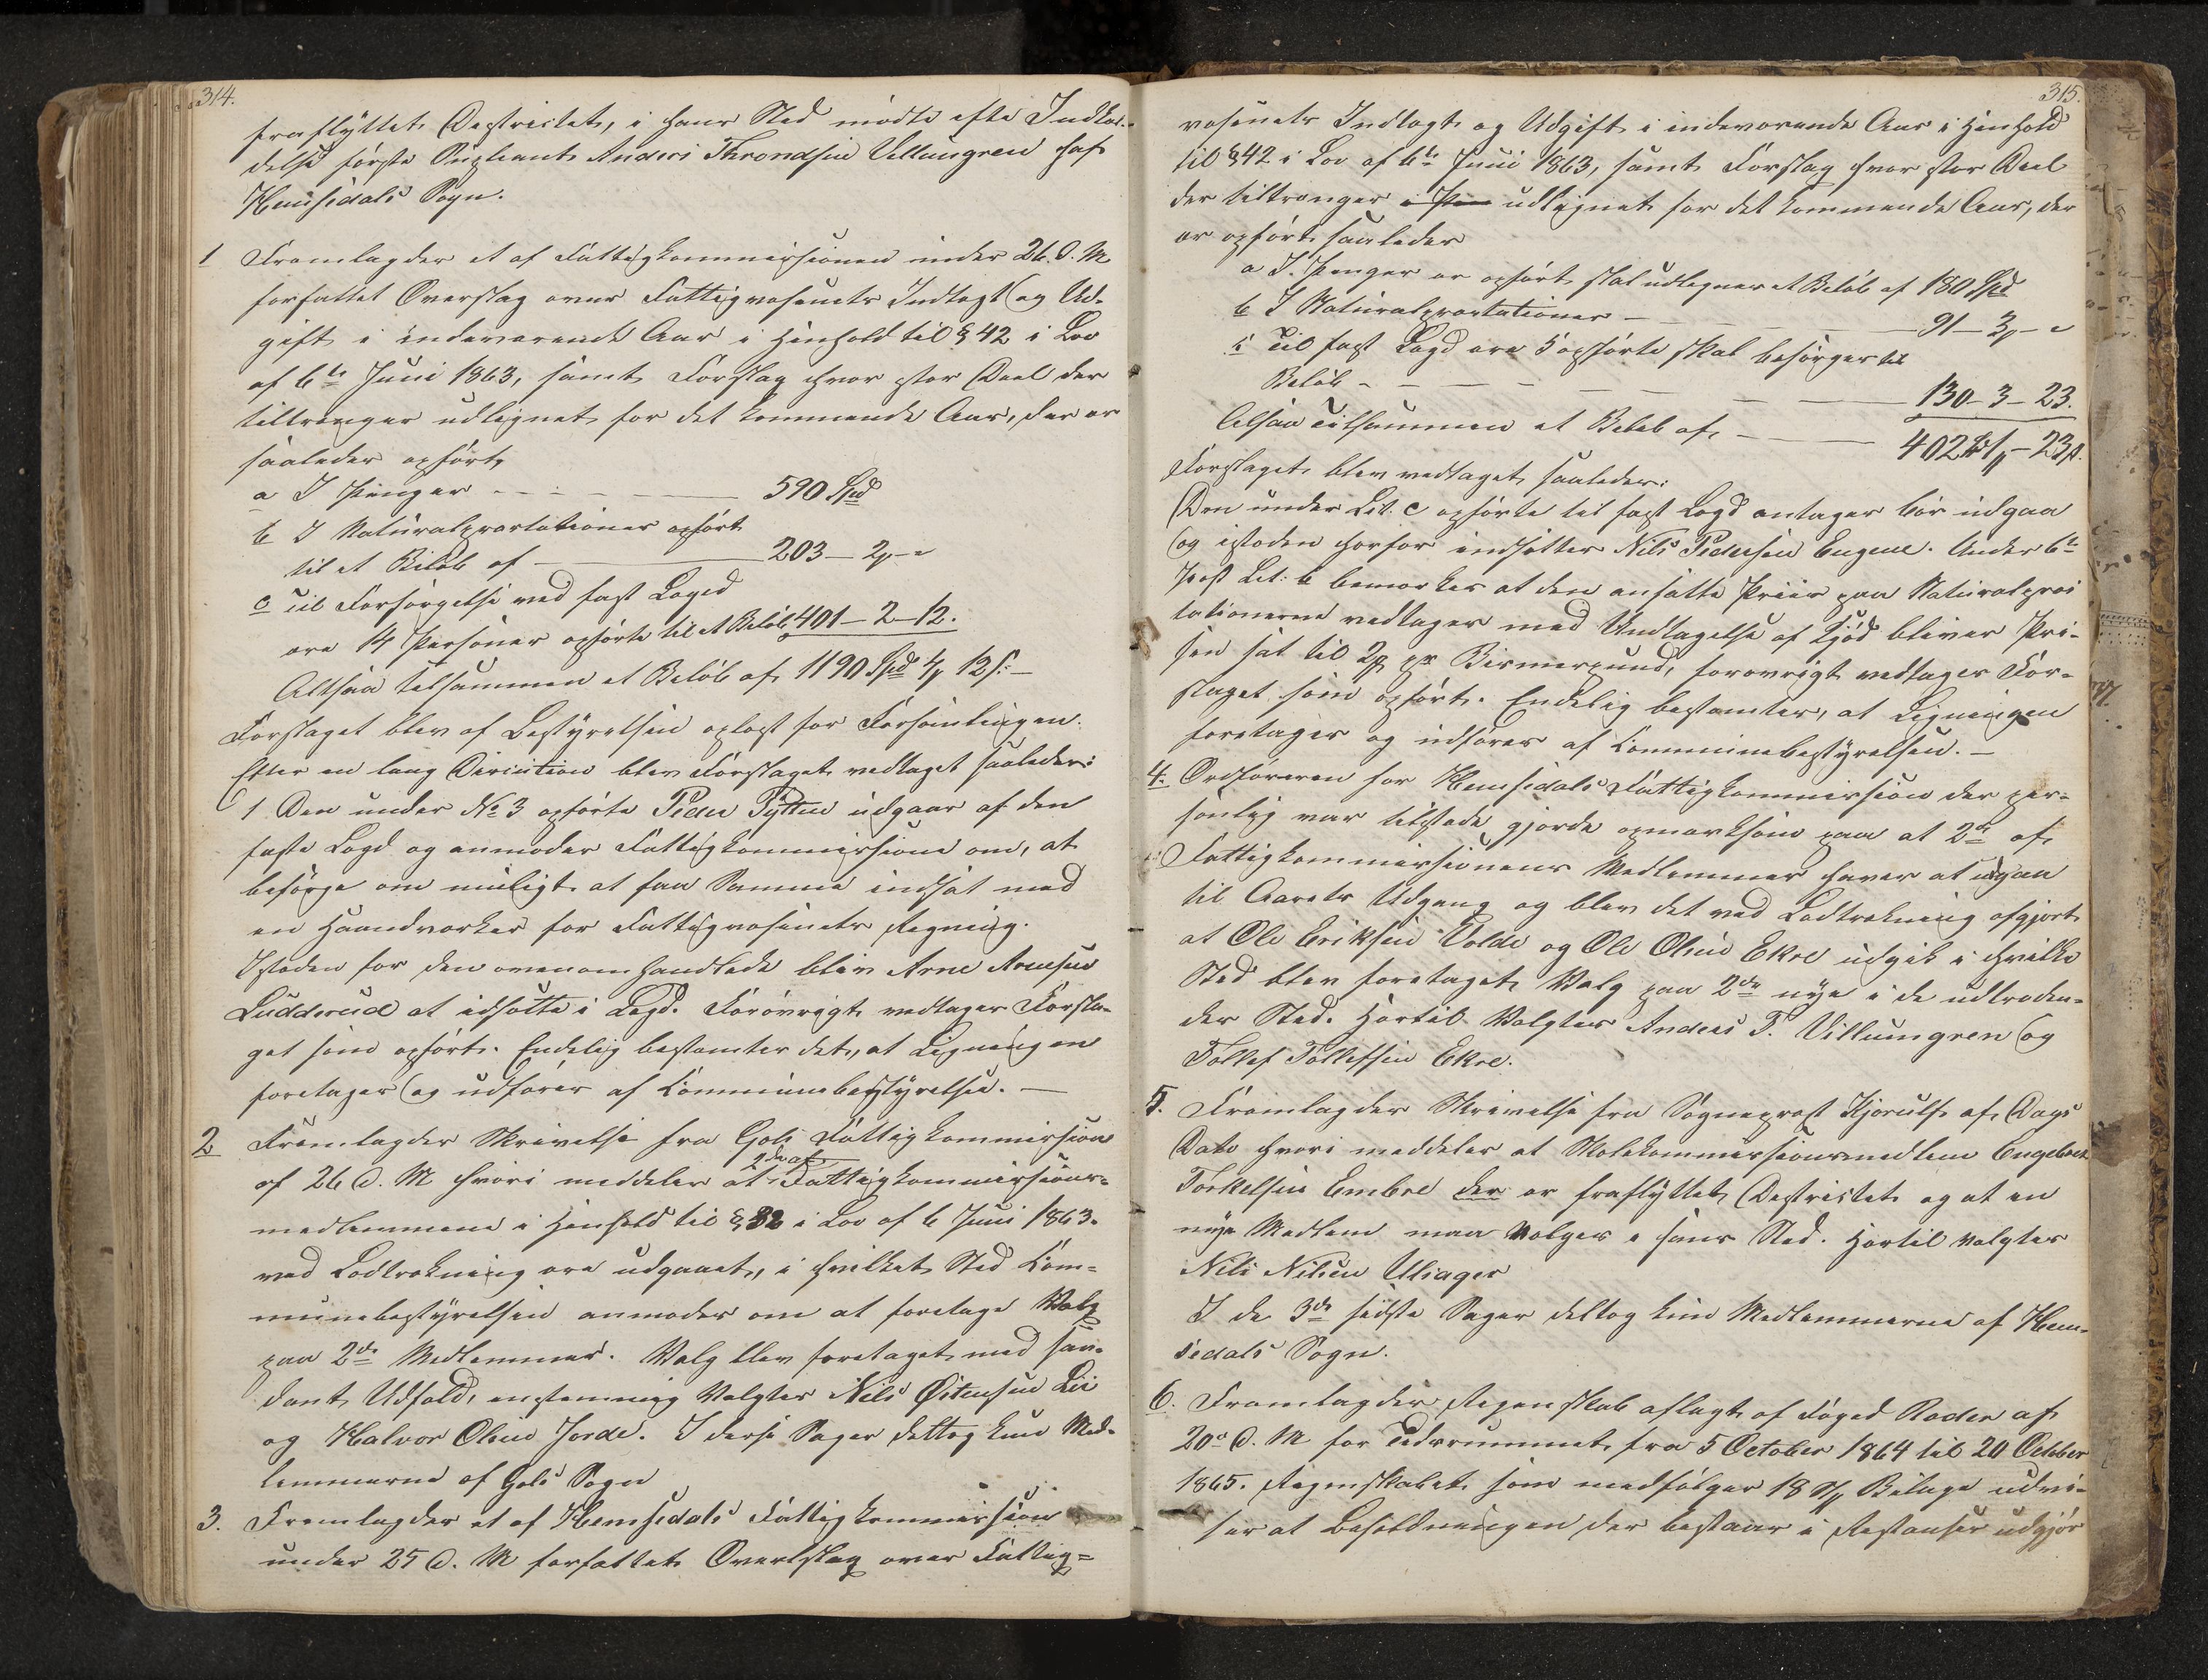 314.
fraflyttet Destrictet, i hans Sted mødte efter Indkal-
delse første Supleant Anders Throndsen Villumgren haf
Hemsedals Sogn.
1 Fremlagdes et af Fattigkommissionen under 26. d. M
forfattet Overslag over Fattigvæsenets Indtægt og Ud-
gift i indeværende Aar i Henhold til § 42 i Lov
af 6te Juni 1863, samt Forslag hvor stor Deel der
tiltrænges udlignet for det kommende Aar, der er
saaledes opført,
a I Penge - - - - 590 Spd
b I Naturalpræstationer opført
til et Beløb af — 203 - 2 -
c Til Forsørgelse ved fast Lægd
ere 14 Personer opførte til et Beløb 401 - 2 - 12.
Altsaa tilsammen et Beløb af 1190 Spd 4 12 s: -
Forslaget blev af Bestyrelsen oplæst for Forsamlingen.
Efter en lang Discution blev Forslaget vedtaget saaledes:
1 Den under No 3 opførte Peder Pytten udgaar af den
faste Lægd og anmodes Fattigkommissione om, at
besørge om muligt at faa Samme indsat med
en Haandværker for Fattigvæsenets Regning.
Istæden for den ovenomhandlede blev Arne Arnesen
Ludderud at idsætte i Lægd. Forøvrigt vedtages Forsla-
get som opført. Endelig bestemtes det, at Ligningen
foretages og udføres af Communebestyrelse. —
2 Fremlagdes Skrivelse fra Gols Fattigkommission
2de af
af 26 d. M hvori meddeles at Fattigkommissions-
medlemmene i Henhold til § 32 i Lov af 6 Juni 1863.
ved Lodtrækning ere udgaaet, i hvilket Sted Com-
munebestyrelsen anmodes om at foretage Valg
paa 2de Medlemmer. Valg blev foretaget med saa-
dant Udfald, enstemmig Valgtes Nils Østensen Lii
og Halvor Olsen Jorde. I disse Sager deltog kun Med-
lemmerne af Gols Sogn
3. Fremlagdes et af Hemsedals Fattigkommission
under 25 d. M forfattet Overslag over Fattig-
315.
væsenets Indtægt og Udgift i indeværende Aar i Henhold
til § 42 i Lov af 6te Juni 1863, samt Forslag hvor stor Deel
der tiltrænges i Pen udlignet for det kommende Aar, der
er opført saaledes
a I. Penger er opført skal udlignes et Beløb af 180 Spd
b I Naturalpræstationer - — 91 - 3 -
c Til fast Lægd ere 5 opførte skal besørges til
Beløb - - — 130 - 3 - 23.
Altsaa tilsammen et Beløb af - — 402 1 - 23 s.
Forslaget blev vedtaget saaledes:
Den under Lit. c opførte til fast Lægd antages bør udgaa
og istæden herfor indsættes Nils Pedersen Eugene. Under 6te
Post Lit: b bemærkes at den ansatte Priis paa Naturalpræs
tationerne vedtages med Undtagelse af Kjød bliver Pri-
sen sat til 2 pr Bismerpund, forøvrigt vedtages For-
slaget som opført. Endelig bestemtes, at Ligningen
foretages og udføres af Communebestyrelsen. -
4. Ordføreren for Hemsedals Fattigkommission der per-
sonlig var tilstæde gjorde opmærksom paa at 2de af
Fattigkommissionens Medlemmer haver at udgaa
til Aarets Udgang og blev det ved Lodtrækning afgjort
at Ole Eriksen Volde og Ole Olsen Ekre udgik i hvilke
Sted blev foretaget Valg paa 2de nye i de udtræden-
des Sted. Hertil Valgtes Anders T. Villumgren og
Tollef Tollefsen Ekre.
5. Fremlagdes Skrivelse fra Sogneprest Kjerulf af Dags
Dato hvori meddeles at Skolekommissionsmedlem Engebret
Torkelsen Embre der er fraflyttet Destrictet og at en
nye Medlem maa Vælges i hans Sted. Hertil Valgtes
Nils Nilsen Ulsager
I de 3de sidste Sager deltog kun Medlemmerne af Hem-
sedals Sogn.
6. Fremlagdes Regenskab aflagt af Foged Roder af
20de d. M for Tidsrummet fra 5 October 1864 til 20 October
1865. Regenskabet som medfølger 18 Bilage udvi-
ser at Beholdningen der bestaar i Restanser udgjør